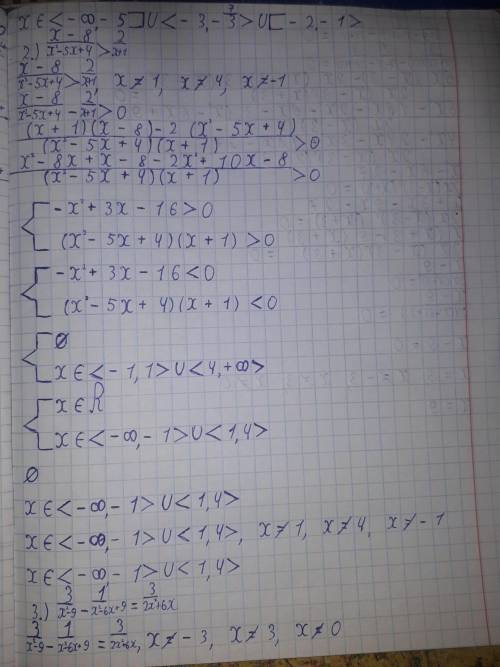 x ∈ < - ∞, - 5 ] U < - 3, - 7/3 > U [ - 2, - 1 >
2.) (x - 8)/(x² - 5x + 4) > 2/(x + 1)
(x - 8)/(x² - 5x + 4) > 2/(x + 1), x ≠ 1, x ≠ 4, x ≠ - 1
(x - 8)/(x² - 5x + 4) - 2/(x + 1) > 0
((x + 1)(x - 8) - 2 (x² - 5x + 4))/((x² - 5x + 4)(x + 1)) > 0
(x² - 8x + x - 8 - 2x² + 10x - 8)/((x² - 5x + 4)(x + 1)) > 0
{ - x² + 3x - 16 > 0
(x² - 5x + 4)(x + 1) > 0
{ - x² + 3x - 16 < 0
(x² - 5x + 4)(x + 1) < 0
{ ∅
x ∈ < - 1, 1 > U < 4, + ∞ >
{ x ∈ R
x ∈ < - ∞, - 1 > U < 1, 4 >
∅
x ∈ < - ∞, - 1 > U < 1, 4 >
x ∈ < - ∞, - 1 > U < 1, 4 >, x ≠ 1, x ≠ 4, x ≠ - 1
x ∈ < - ∞, - 1 > U < 1, 4 >
3.) 3/(x² - 9) - 1/(x² - 6x + 9) = 3/(2x² + 6x)
3/(x² - 9) - 1/(x² - 6x + 9) = 3/(2x² + 6x), x ≠ - 3, x ≠ 3, x ≠ 0